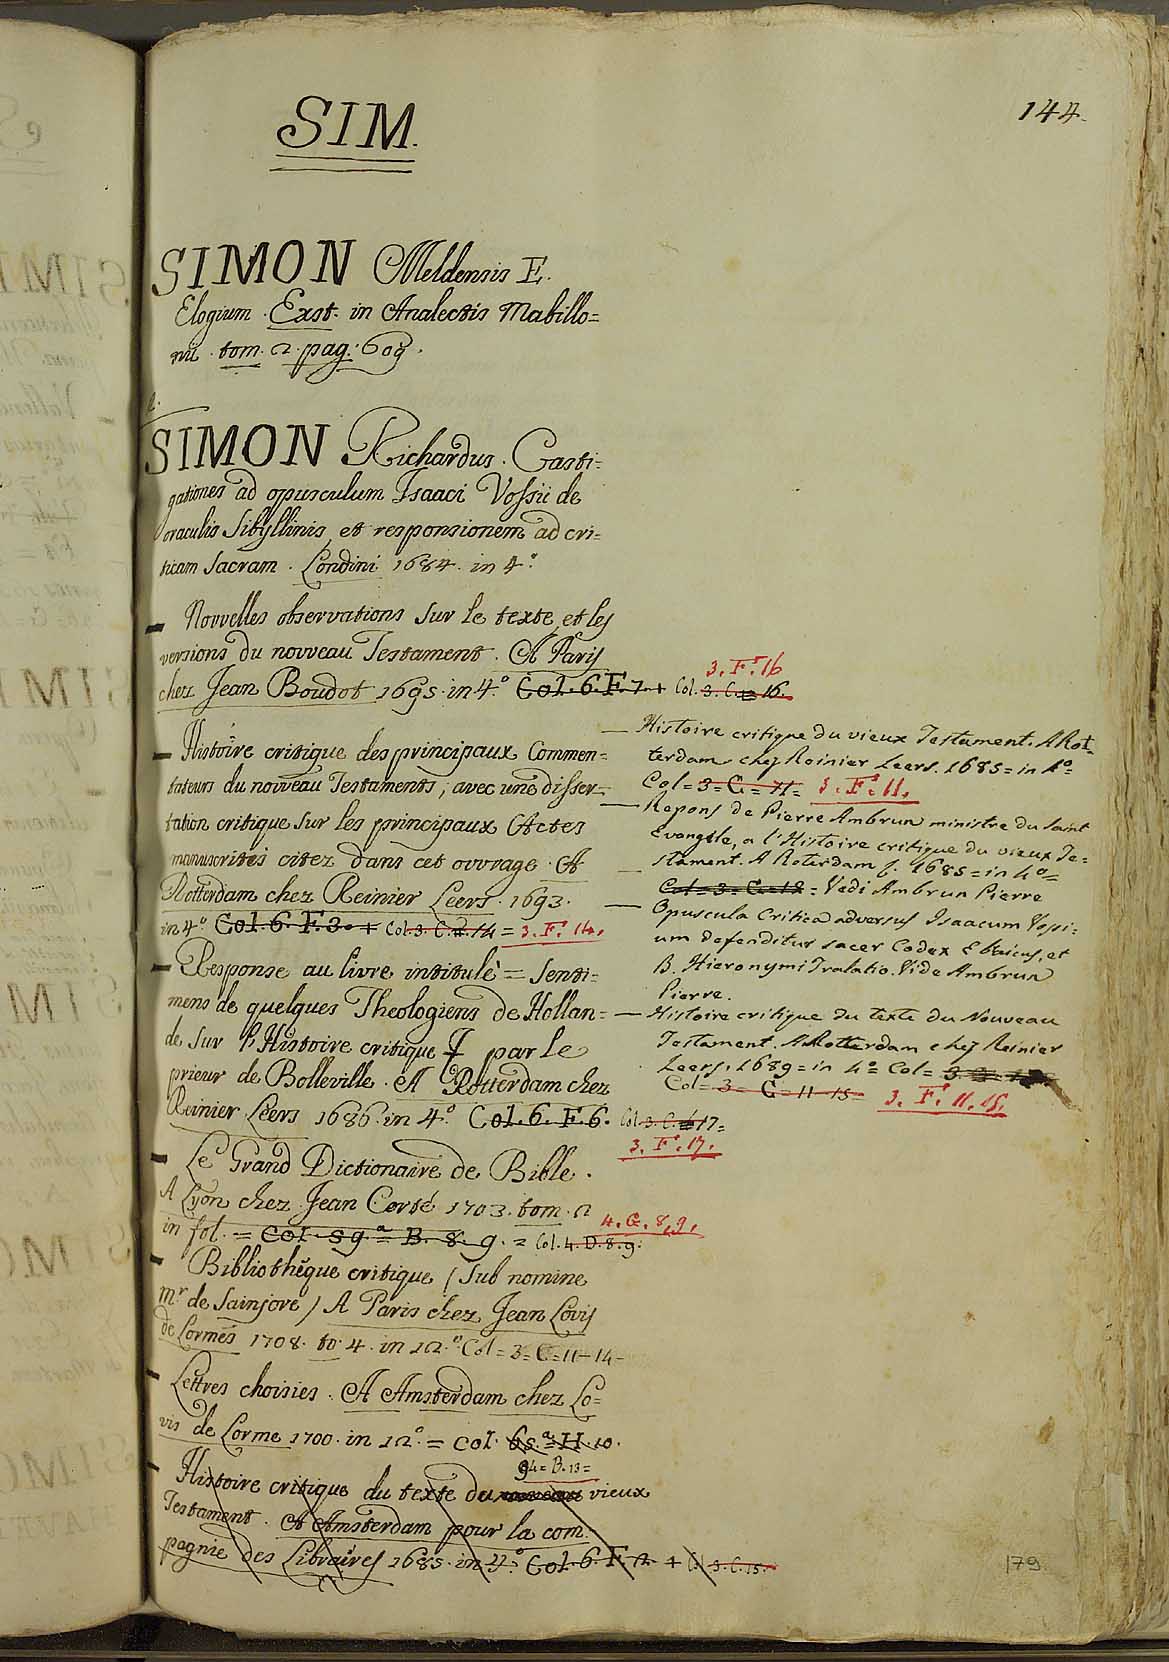 144.
SIM.
SIMON Meldensis E.
Elogium. Exst. in Analectis Mabillo=
nii. tom. 2. pag: 609.
SIMON Richardus. Casti=
gationes ad opusculum Isaaci Vossii de
oraculis Sibyllinis, et responsionem ad cri=
ticam Sacram. Londini 1684. in 4.º
Novvelles observations sur le texte, et les
versions du novveau Testament. A Paris
chez Jean Boudot 1695. in 4.º Col. 6. F. 7. + Col. 3. C. 16.
3. F. 16
Histoire critique des principaux Commen=
tateurs du nouveau Testaments, avec une disser=
tation critique sur les principaux Actes
manuscrites citez dans cet ovvrage. A
Rotterdam chez Reinier Leers. 1693.
in 4.º Col. 6. F. 3. + Col. 3. C. 14 = 3. F. 14.
Response au livre intitulè = Senti=
mens de quelques Theologiens de Hollan=
de sur l'Histoire critique par le
prieur de Bolleville. A Rotterdam chez
Reinier Leers 1686. in 4.º Col. 6. F. 6. Col. 3. C. 17=
3. F. 17.
Le Grand Dictionaire de Bible.
A Lyon chez Jean Certé 1703. tom. 2
in fol. = Col. 59.ª B. 8. 9. = Col. 4. D. 8. 9.
4. G. 8, 9,
Bibliothéque critique (sub nomine
Mr de Sainjove) A Paris chez Jean Lovis
de Lormés 1708. to. 4. in 12.º Col = 3 = C = 11 - 14 -
Lettres choisies. A Amsterdam chez Lo=
vis de Lorme 1700. in 12.º = Col. 65.ª H. 10.
94 = B. 13 =
Histoire critique du texte du vieux
Testament. A Amsterdam pour la com.
pagnie des Libraires 1685. in 4.º Col. 6. F. 2. + Col. 3. C. 15.
Histoire critique du vieux Testament. A Rot=
terdam chez Reinier Leers. 1685 = in 4º =
Col = 3 = C = 11 = 3. F. 11.
Repons de Pierre Ambrun ministre du saint
Evangile, a l'Histoire critique du vieux Te=
stament. A Roterdam 1685 = in 4º =
Col = 3 = C = 12 = Vedi Ambrun Pierre
Opuscula Critica adversus Isaacum Vossi=
um defenditur sacer Codex Ebraicus, et
B. Hieronymi Tralatio. Vide Ambrun
Pierre.
Histoire critique du texte du Nouveau
Testament. A Rotterdam chez Reinier
Leers. 1689 = in 4º Col =
Col = 3 = C = 11 = 15 = 3. F. 11. 15.
179